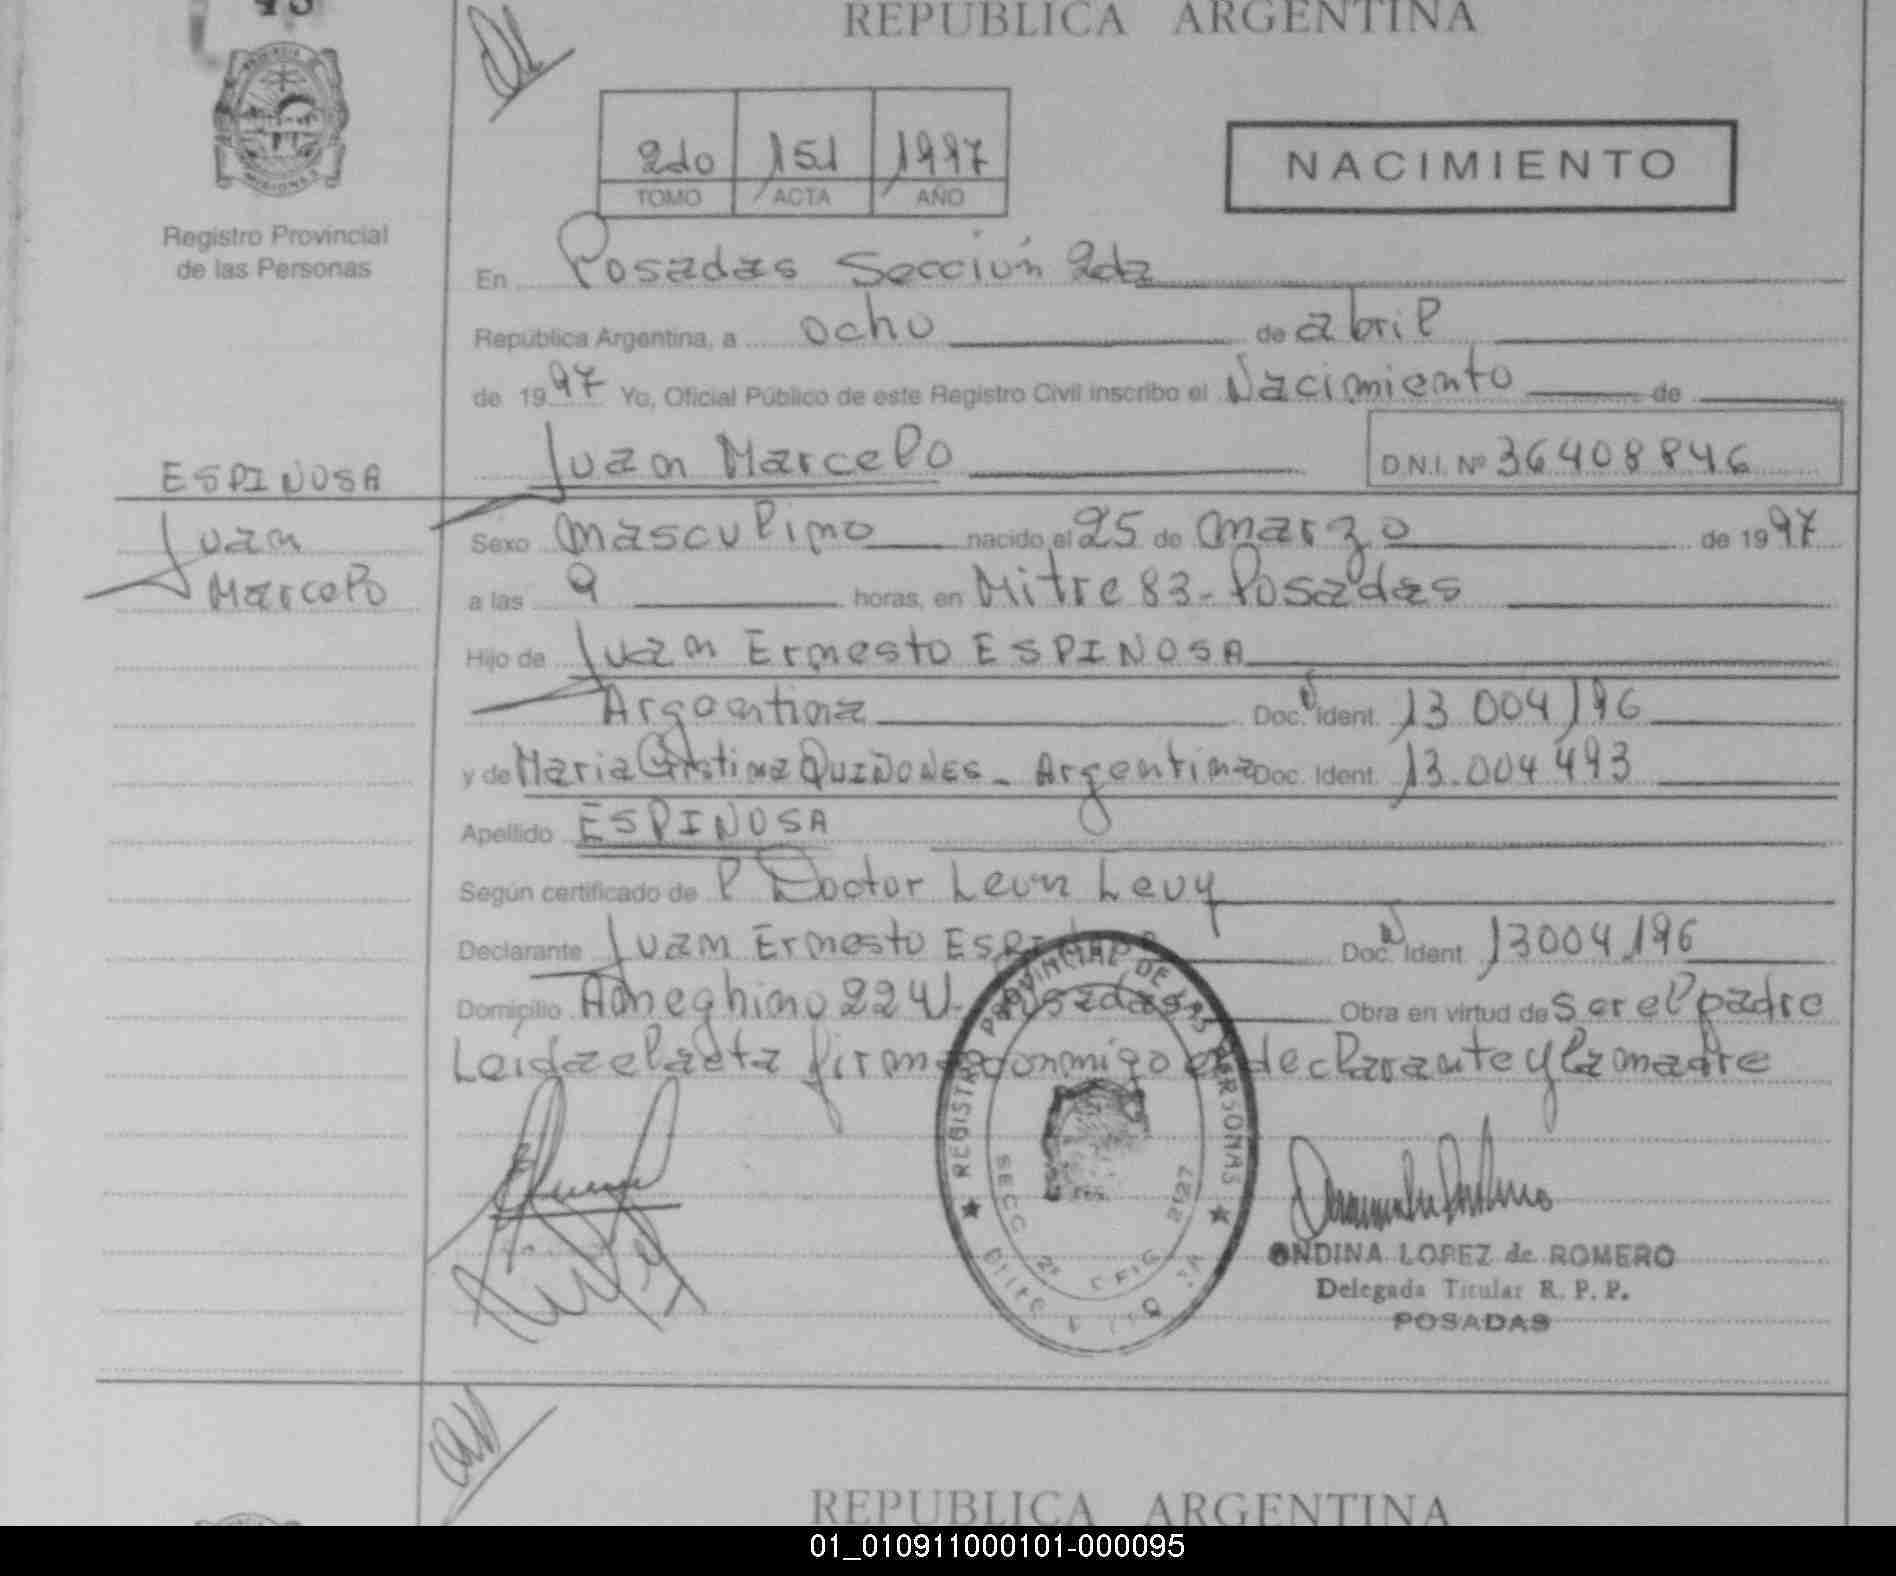 REPUBLICA ARGENTINA
2do 151 1997
TOMO ACTA AÑO
NACIMIENTO
Registro Provincial
de las Personas
En Posadas Sección 2da
República Argentina, a ocho de abril
de 1997 Yo, Oficial Público de este Registro Civil inscribo el Nacimiento de
Juan Marcelo D.N.I. Nº 36408846
ESPINOSA
Juan
Marcelo
Sexo masculino nacido el 25 de marzo de 1997
a las 9 horas, en Mitre 83 - Posadas
Hijo de Juan Ernesto ESPINOSA
Argentina Doc. Ident. 13 004 196
y de Maria Cristina QUIÑONES - Argentina Doc. Ident. 13.004 493
Apellido ESPINOSA
Según certificado de l Doctor Leon Levy
Declarante Juan Ernesto ESPINOSA Doc. Ident. 13004196
Domicilio Ameghino 224 - Posadas Obra en virtud de ser el padre
Leída el acta firma conmigo el declarante y la madre
REGISTRO PROVINCIAL DE LAS PERSONAS
SECC 2ª
ONDINA LOPEZ de ROMERO
Delegada Titular R. P. P.
POSADAS
REPUBLICA ARGENTINA
01_010911000101-000095